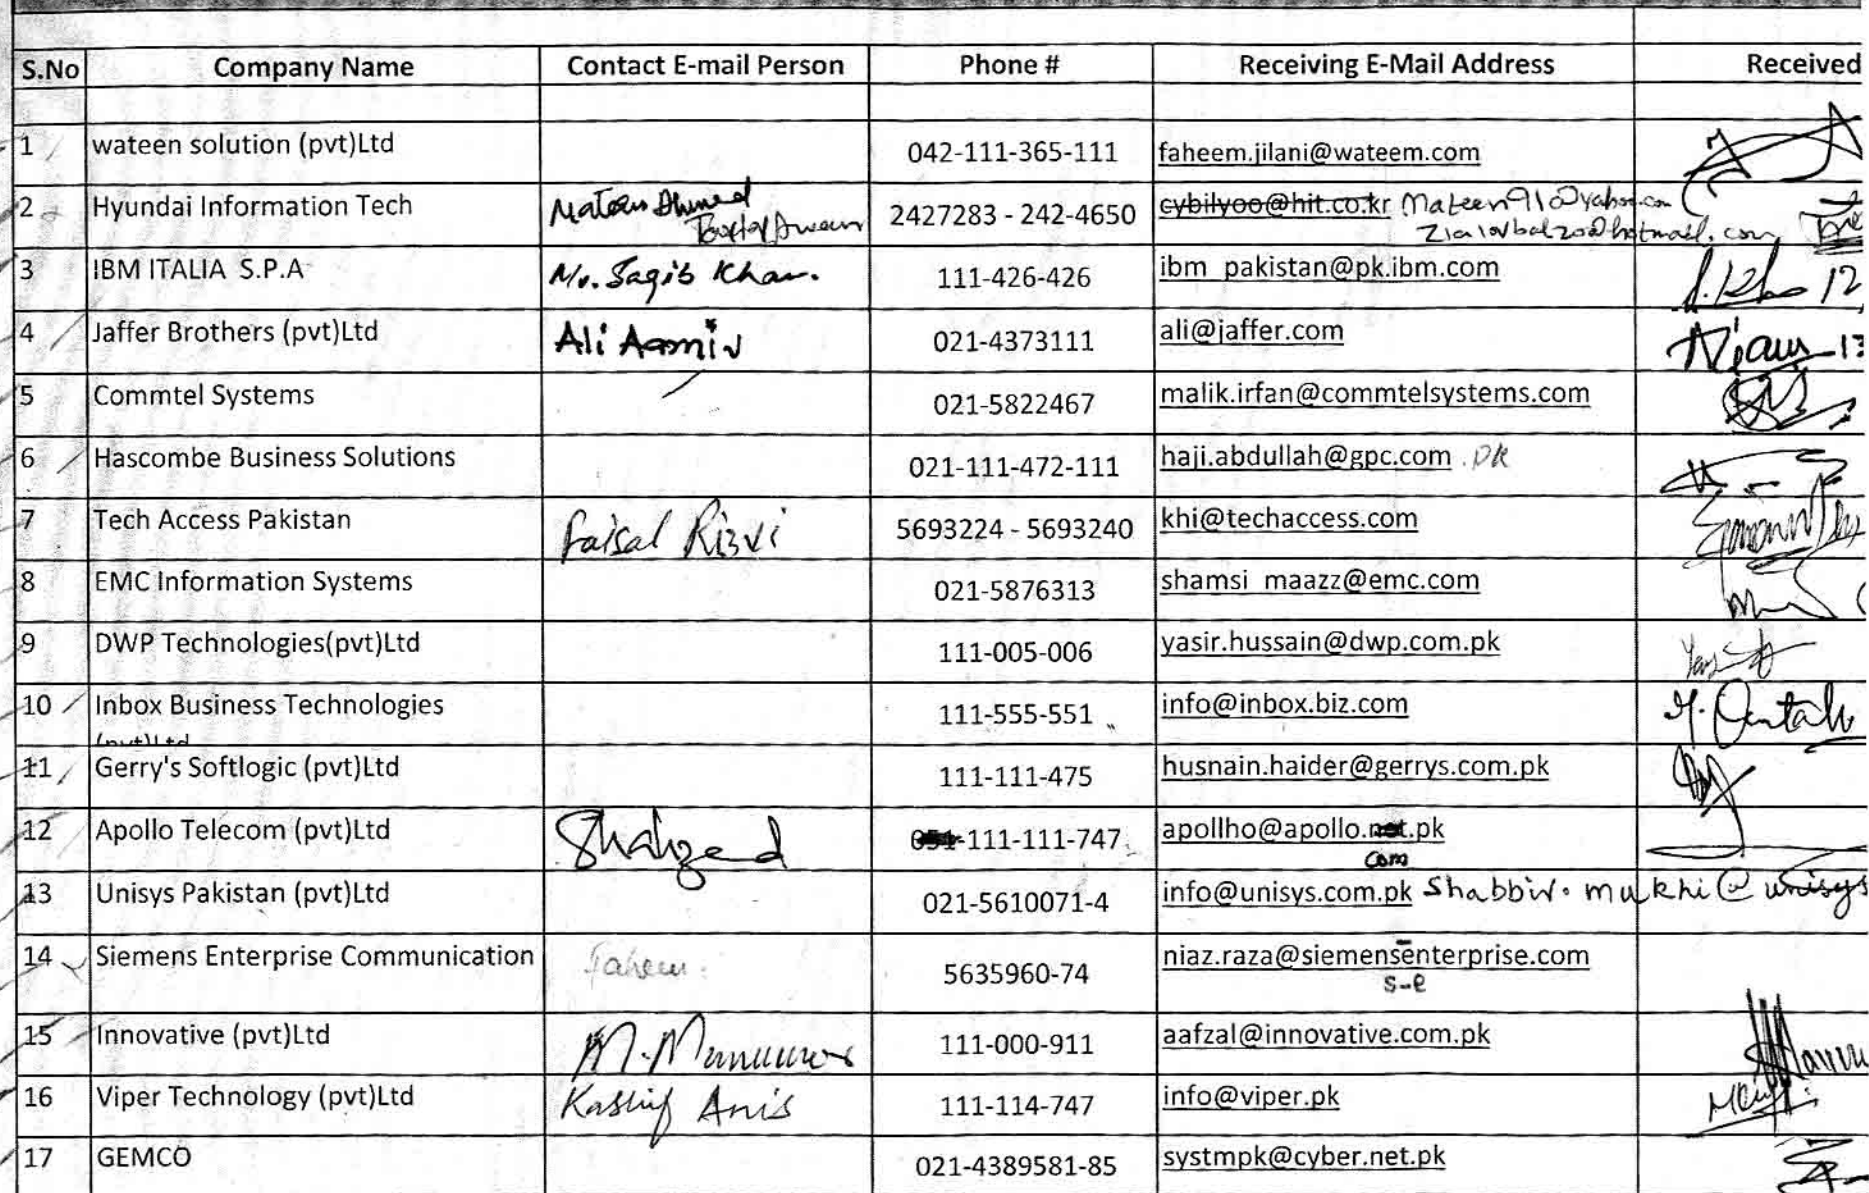 S.No Company Name Contact E-mail Person Phone # Receiving E-Mail Address Received
1 wateen solution (pvt)Ltd 042-111-365-111 faheem.jilani@wateem.com
2 Hyundai Information Tech Mateen Ahmed 2427283 - 242-4650 cybilyoo@hit.co.kr Mateen910@yahoo.com
3 IBM ITALIA S.P.A Mr. Saqib Khan. 111-426-426 ibm_pakistan@pk.ibm.com 12
4 Jaffer Brothers (pvt)Ltd Ali Aamir 021-4373111 ali@jaffer.com
5 Commtel Systems 021-5822467 malik.irfan@commtelsystems.com
6 Hascombe Business Solutions 021-111-472-111 haji.abdullah@gpc.com .pk
7 Tech Access Pakistan Faisal Rizvi 5693224 - 5693240 khi@techaccess.com
8 EMC Information Systems 021-5876313 shamsi_maazz@emc.com
9 DWP Technologies(pvt)Ltd 111-005-006 yasir.hussain@dwp.com.pk
10 Inbox Business Technologies 111-555-551 info@inbox.biz.com
(pvt)Ltd
11 Gerry's Softlogic (pvt)Ltd 111-111-475 husnain.haider@gerrys.com.pk
12 Apollo Telecom (pvt)Ltd Shahzad 051-111-111-747 apollho@apollo.net.pk
com
13 Unisys Pakistan (pvt)Ltd 021-5610071-4 info@unisys.com.pk Shabbir.mukhi@unisys
14 Siemens Enterprise Communication Faheem 5635960-74 niaz.raza@siemensenterprise.com
s-e
15 Innovative (pvt)Ltd 111-000-911 aafzal@innovative.com.pk
16 Viper Technology (pvt)Ltd Kashif Anis 111-114-747 info@viper.pk
17 GEMCO 021-4389581-85 systmpk@cyber.net.pk